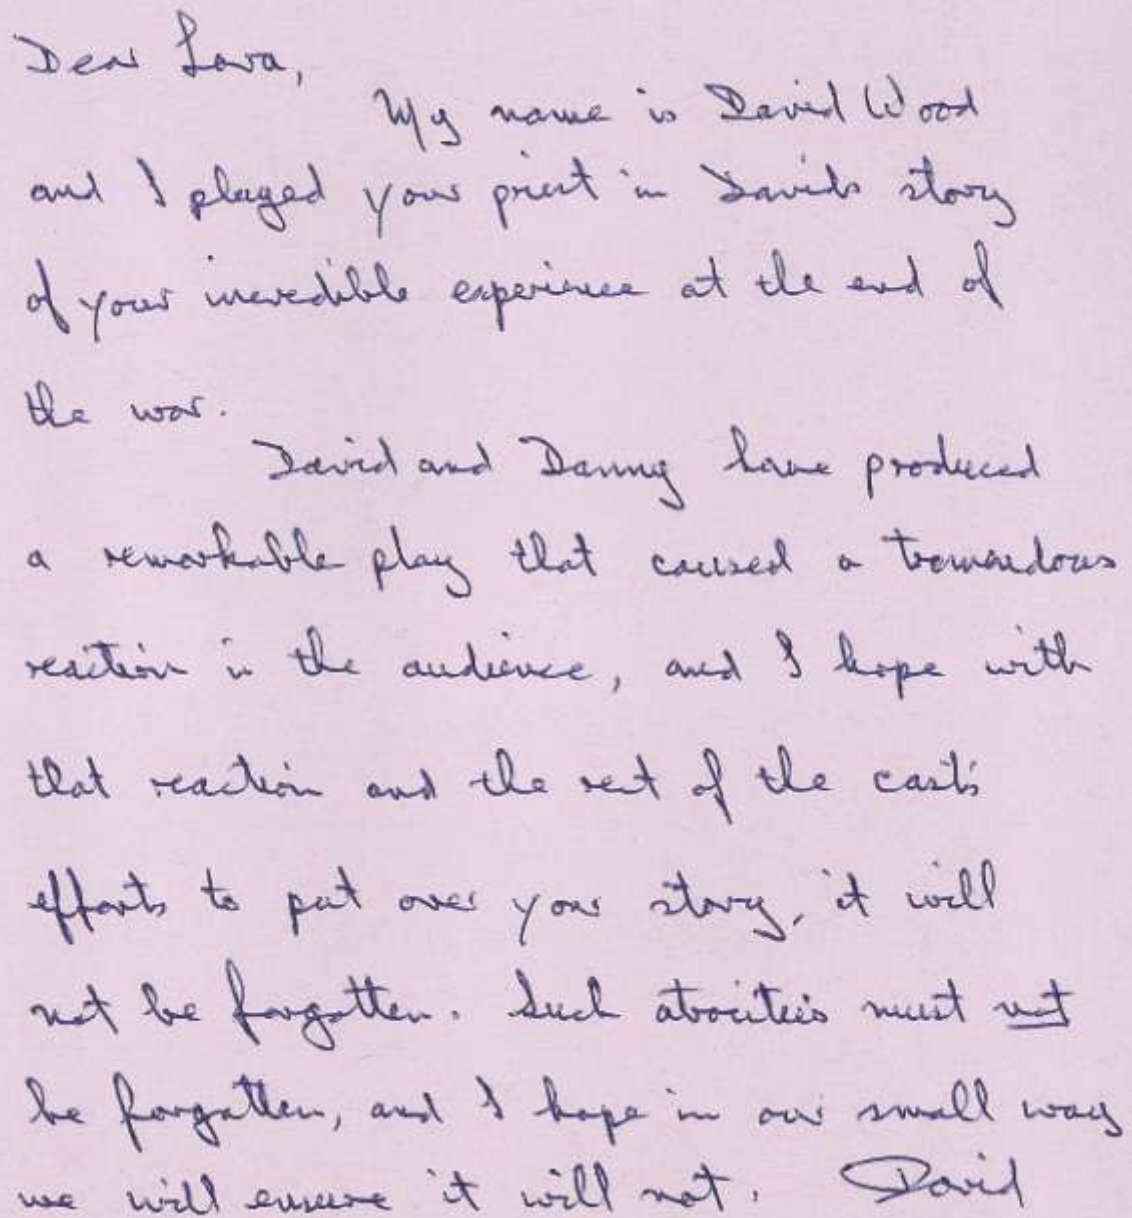 Dear Lara,
My name is David Wood
and I played your priest in Davids story
of your incredible experience at the end of
the war.
David and Danny have produced
a remarkable play that caused a tremendous
reaction in the audience, and I hope with
that reaction and the rest of the cast's
efforts to put over your story, it will
not be forgotten. Such atrocities must not
be forgotten, and I hope in our small way
we will ensure it will not. David